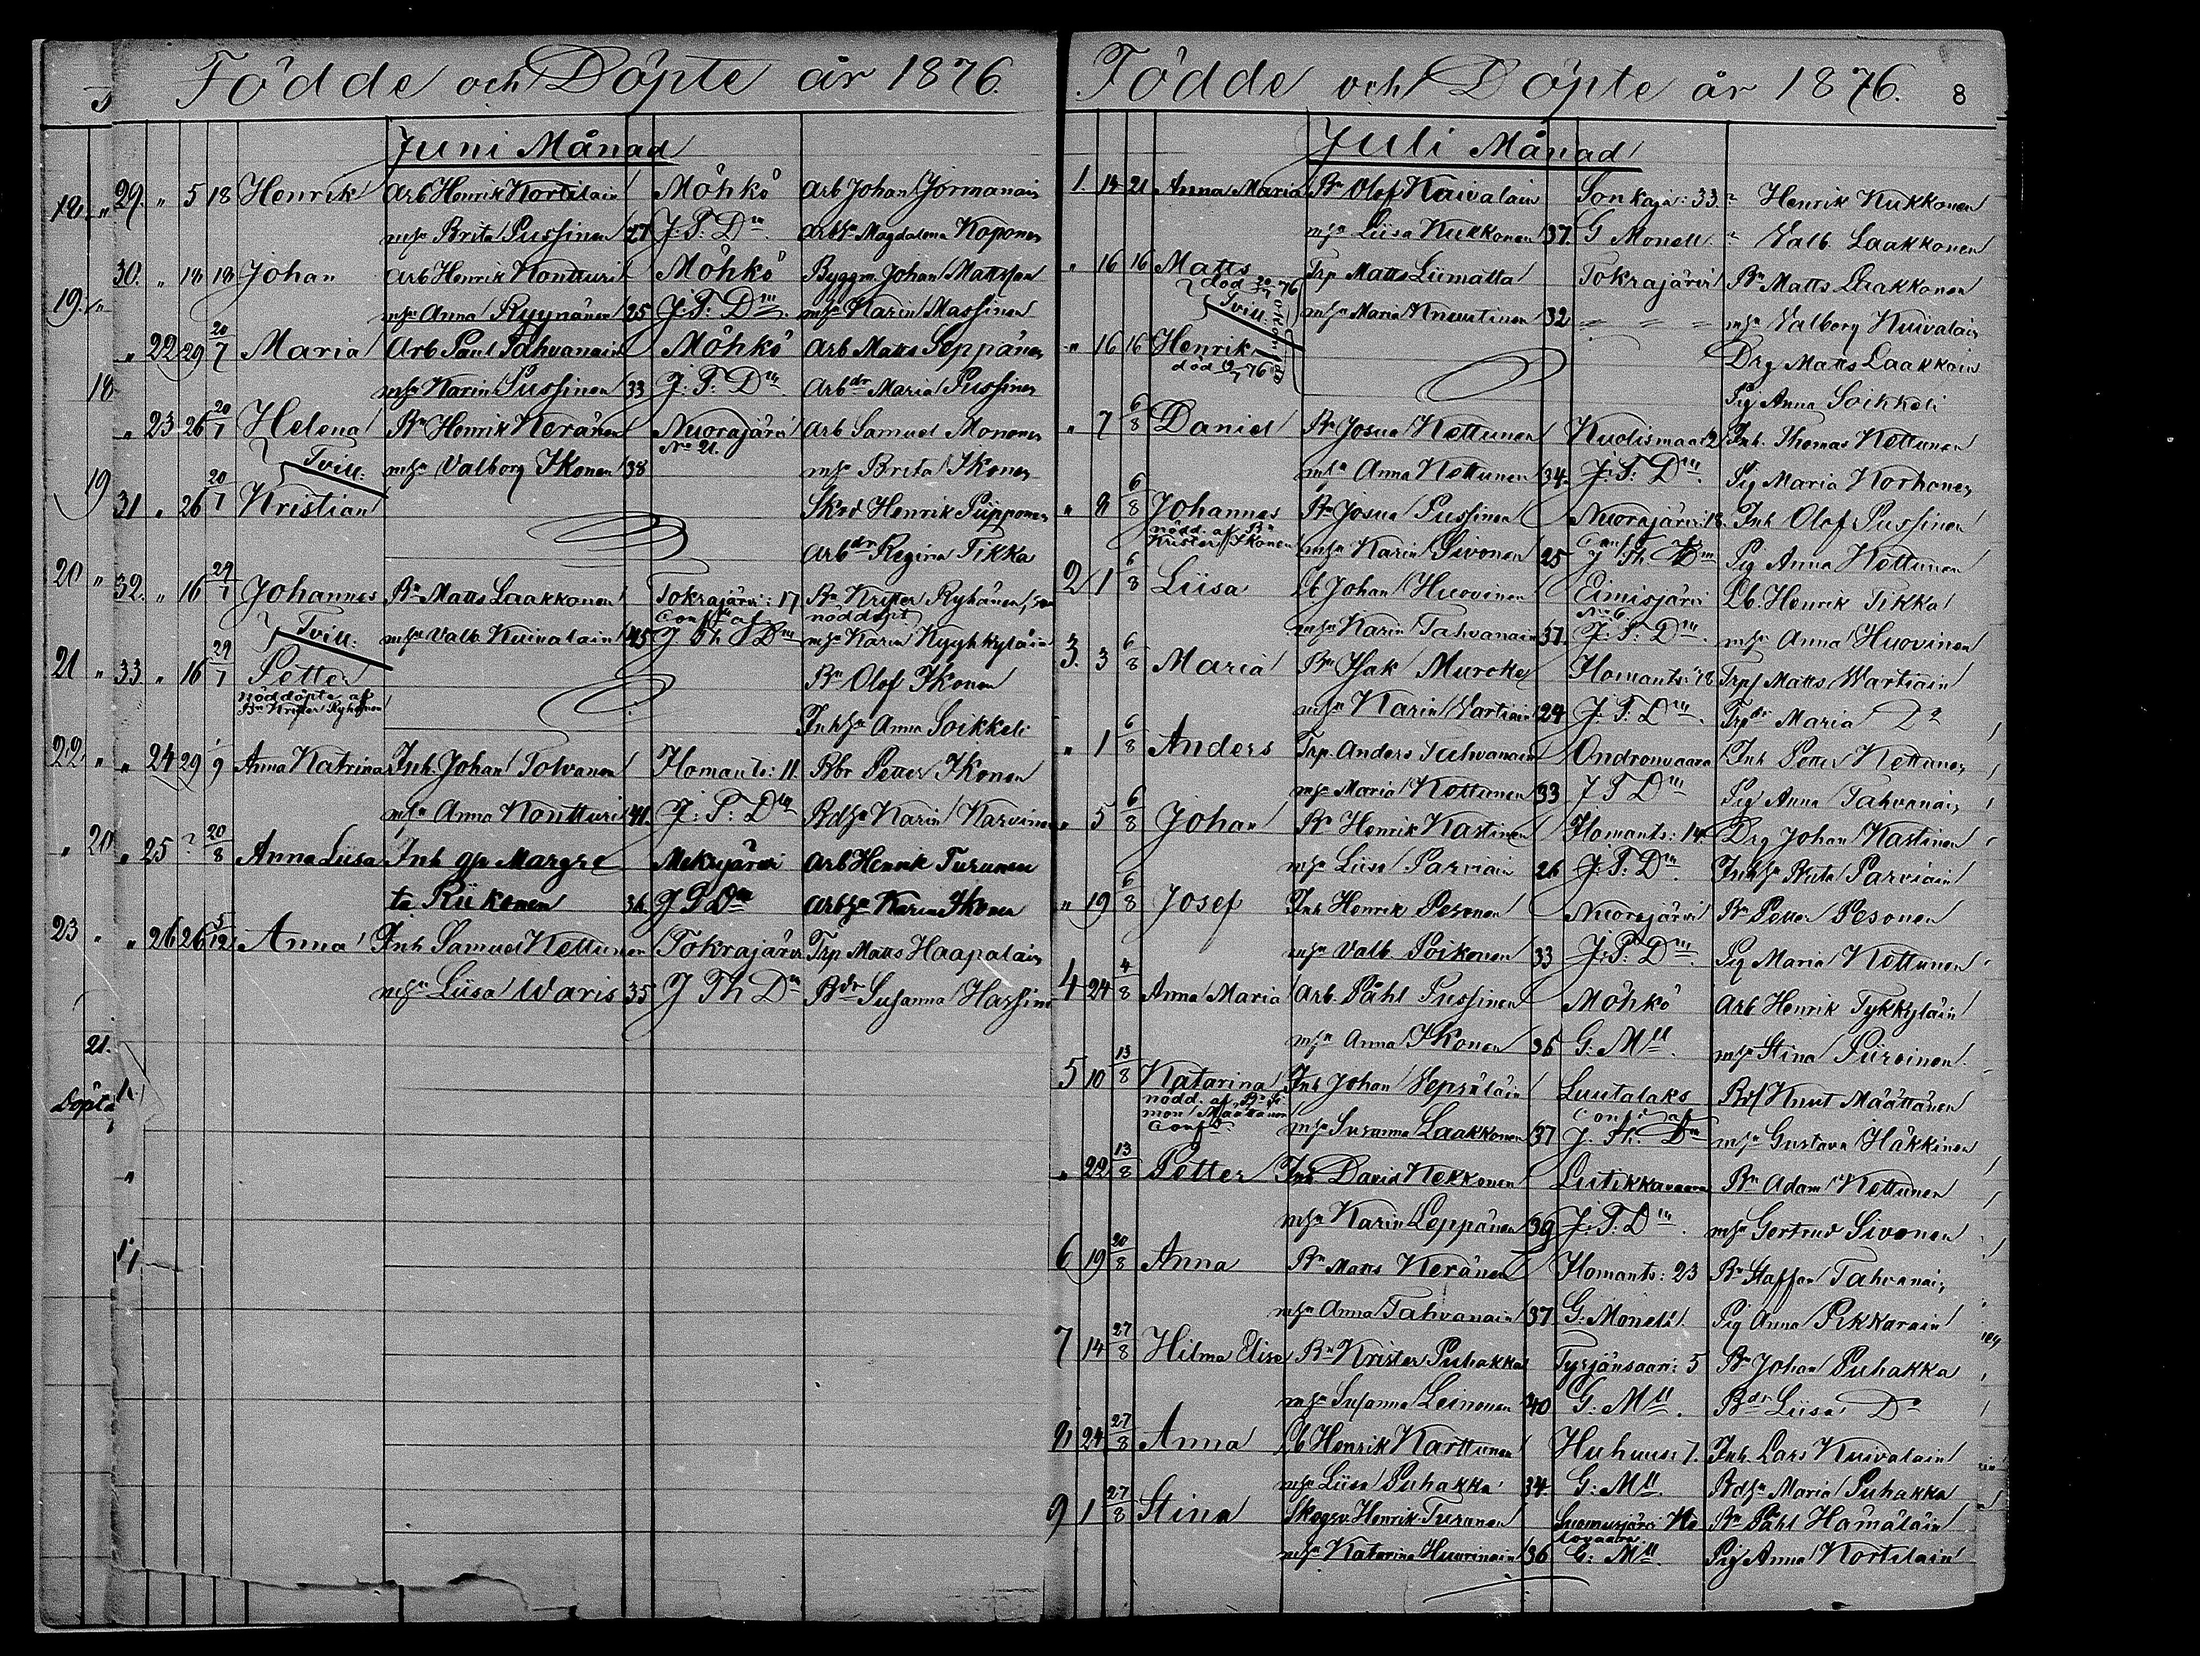 Födde och Döpte år 1876.
Juni Månad
29. " 5 18 Henrik Arb Henrik Kortelain Möhkö Arb Johan Jormanain
mhu Brita Pussinen 27 J. T. Dm. Arbhu Magdalena Koponen
30. " 18 18 Johan Arb Henrik Kontturi Möhkö Byggm Johan Mattsson
mhu Anna Ryynänen 25 J. T. Dm. mhu Karin Massinen
" 22 29 20/7 Maria Arb Paul Tahvanain Möhkö Arb Matts Seppänen
mhu Karin Pussinen 33 J. T. Dm. Arbdr Maria Pussinen
" 23 26 20/7 Helena Bn Henrik Keränen Nuorajärvi No 21. Arb Samuel Mononen
Tvill. mhu Valborg Ikonen 38 mhu Brita Ikonen
31 " 26 20/7 Kristian Skrd Henrik Piipponen
Arbdr Regina Tikka
32. " 16 29/7 Johannes Bn Matts Laakkonen Tokrajärvi: 17 Bn Krister Ryhänen
Conff af nöddöpt
Tvill. mhu Valb Kuivalain 45 J Th Dm mhu Karin Kyyhkyläin
33 " 16 29/7 Petter Bn Olof Ikonen
nöddöpte af
Bn Krister Ryhänen
Inhhu Anna Soikkeli
" 24 29 /9 Anna Katrina Inh Johan Tolvanen Ilomants: 11. Bbr Petter Ikonen
mhu Anna Kontturi 41. J. T. Dm Bdhu Karin Karvinen
" 25 ? 20/8 Anna Liisa Inh qp Margre Mekrijärvi Arb Henrik Turunen
ta Riikonen 36. J T Dm Arbhu Karin Ikonen
" 26 26 5/12 Anna Inh Samuel Kettunen Tokrajärvi Trp Matts Haapalain
mhu Liisa Waris 35 J Th Dm Bdr Susanna Hassinen
19. "
19. "
18
19
20 "
21 "
22 "
" 20
23 "
21.
Döpta
Födde och Döpte år 1876. 8
Juli Månad
1. 14 21 Anna Maria Bn Olof Kuivalain Sonkaja: 33. " Henrik Kukkonen
mhu Liisa Kukkonen 37. G Monell. " Valb. Laakkonen
" 16 16 Matts Trp Matts Liimatta Tokrajärvi Bn Matts Laakkonen
död 20/7 76
Tvill. mhu Maria Knuutinen 32 mhu Valborg Kuivalain
" 16 16 Henrik Drg Matts Laakkoin
död /7 76
Pig Anna Soikkeli
" 7 6/8 Daniel Bn Josua Kettunen Kuolismaa: 2 Inh. Thomas Kettunen
mhu Anna Kettunen 34. J. T. Dm. Pig Maria Korhonen
" 8 6/8 Johannes Bn Josua Pussinen Nuorajärvi: 18. Inh Olof Pussinen
nödd. af Bn
Krister Ikonen mhu Karin Sivonen 25 Conf J Th Dm Pig Anna Kettunen
2 1 6/8 Liisa Lb Johan Huovinen Eimisjärvi Lb. Henrik Tikka
No 6
mhu Karin Tahvanain 37. J. T. Dm. mhu Anna Huovinen
3. 3 6/8 Maria Bn Isak Murcke Ilomants: 18 Trp Matts Wartiain
mhu Karin Vartiain 24 J. T. Dm. Trpdr Maria Do
" 1 6/8 Anders Trp. Anders Tahvanain Ondronvaara Inh Petter Kettunen
mhu Maria Kettunen 33 J T Dm Pig Anna Tahvanain
" 5 6/8 Johan Bn Henrik Kastinen Ilomants: 14. Drg Johan Kastinen
mhu Liisa Parviain 26 J. T. Dm. Inhhu Brita Parviain
" 19 6/8 Josef Inh Henrik Pesonen Nuorajärvi Bn Petter Pesonen
mhu Valb Poikonen 33 J. T. Dm. Pig Maria Kettunen
4 24 4/8 Anna Maria Arb. Påhl Pussinen Möhkö Arb Henrik Tykkyläin
mhu Anna Ikonen 36 G. Mll. mhu Stina Piiroinen.
5 10 13/8 Katarina Inh Johan Vepsäläin Luutalaks Bd Knut Määttänen
nödd. af Bn Si
mon Määttänen
Conf. mhu Susanna Laakkonen 37 Conf. af J. Th. Dm mhu Gustava Häkkinen
" 22 13/8 Petter Inh David Nekkonen Liitikkavaara Bn Adam Kettunen
mhu Karin Leppänen 39 J. T. Dm. mhu Gertrud Sivonen
6 19 20/8 Anna Bn Matts Keränen Ilomants: 23 Bn Staffan Tahvanain
mhu Anna Tahvanain 37. G. Monell. Pig Anna Pikkarain
7 14 27/8 Hilma Elise Bn Krister Puhakka Tyrjänsaari: 5 Bn Johan Puhakka
mhu Susanna Leinonen 40 G. Mll. Bdr Liisa Do
8 24 27/8 Anna Lb Henrik Karttunen Huhuus: 7. Inh. Lars Kuivalain
mhu Liisa Puhakka 34. G. Mll. Bdhu Maria Puhakka
9 1 27/8 Stina Skogsv. Henrik Turanen Luomusjärvi He Bn Påhl Hämäläin
lovaara
mhu Katarina Huurinain 36 G. Mll. Pig Anna Kortelain